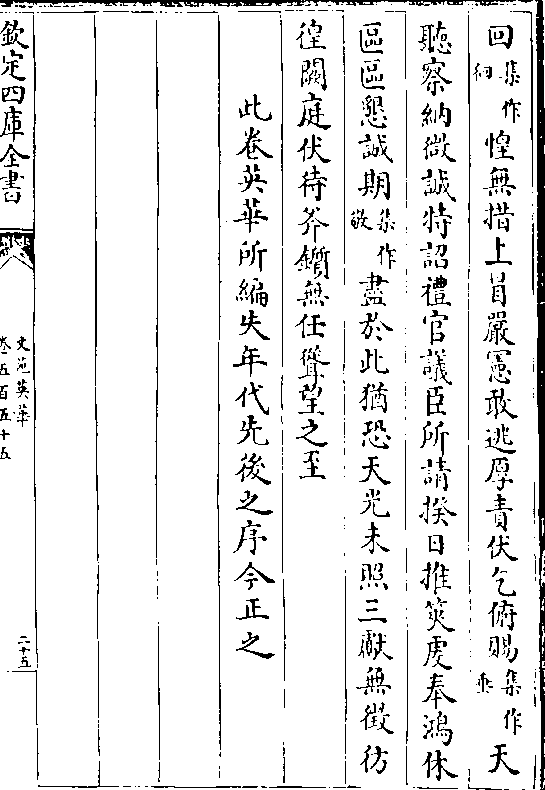 回集作徊惶無措上冒嚴憲敢逃厚責伏乞俯賜集作垂天
聽察納微誠特詔禮官議臣所請揆日推筴虔奉鴻休
區區懇誠期集作敬盡於此猶恐天光未照三獻無徵彷
徨闕庭伏待斧鑕無任聳望之至
此卷英華所編失年代先後之序今正之
欽定四庫全書
文苑英華
卷五百五十五
二十五